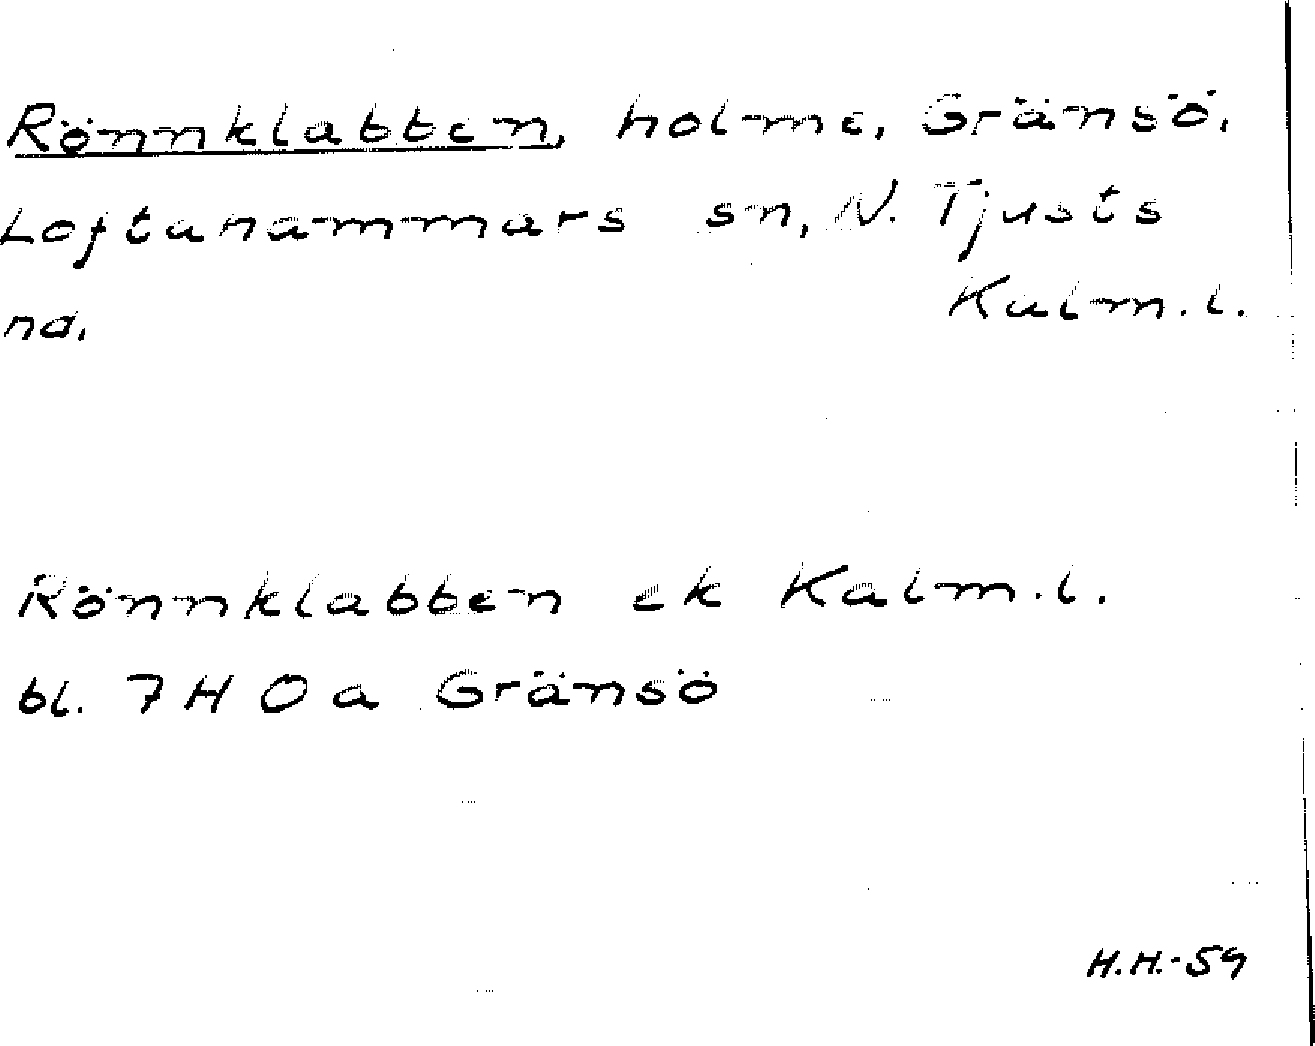 Rönnklabben, holme, Gränsö,
Loftahammars sn, N. Tjusts
hd. Kalm.l.
Rönnklabben ek Kalm.l.
bl. 7 H 0 a Gränsö
H.H.-59